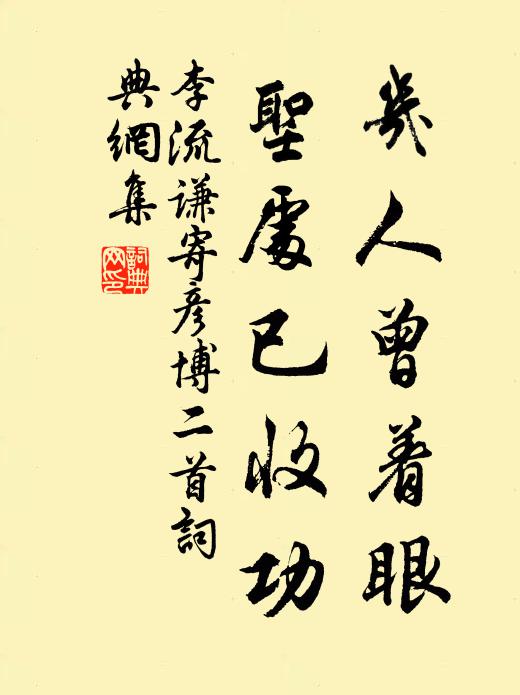 幾人曾着眼
聖處已收功
李流谦寄彦博二首詞
典網集
詞典
网印